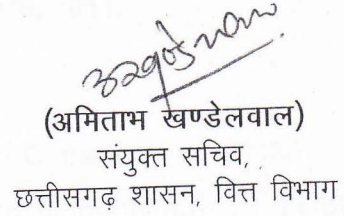 (अमिताभ खण्डेलवाल)
संयुक्त सचिव,
छत्तीसगढ़ शासन, वित्त विभाग